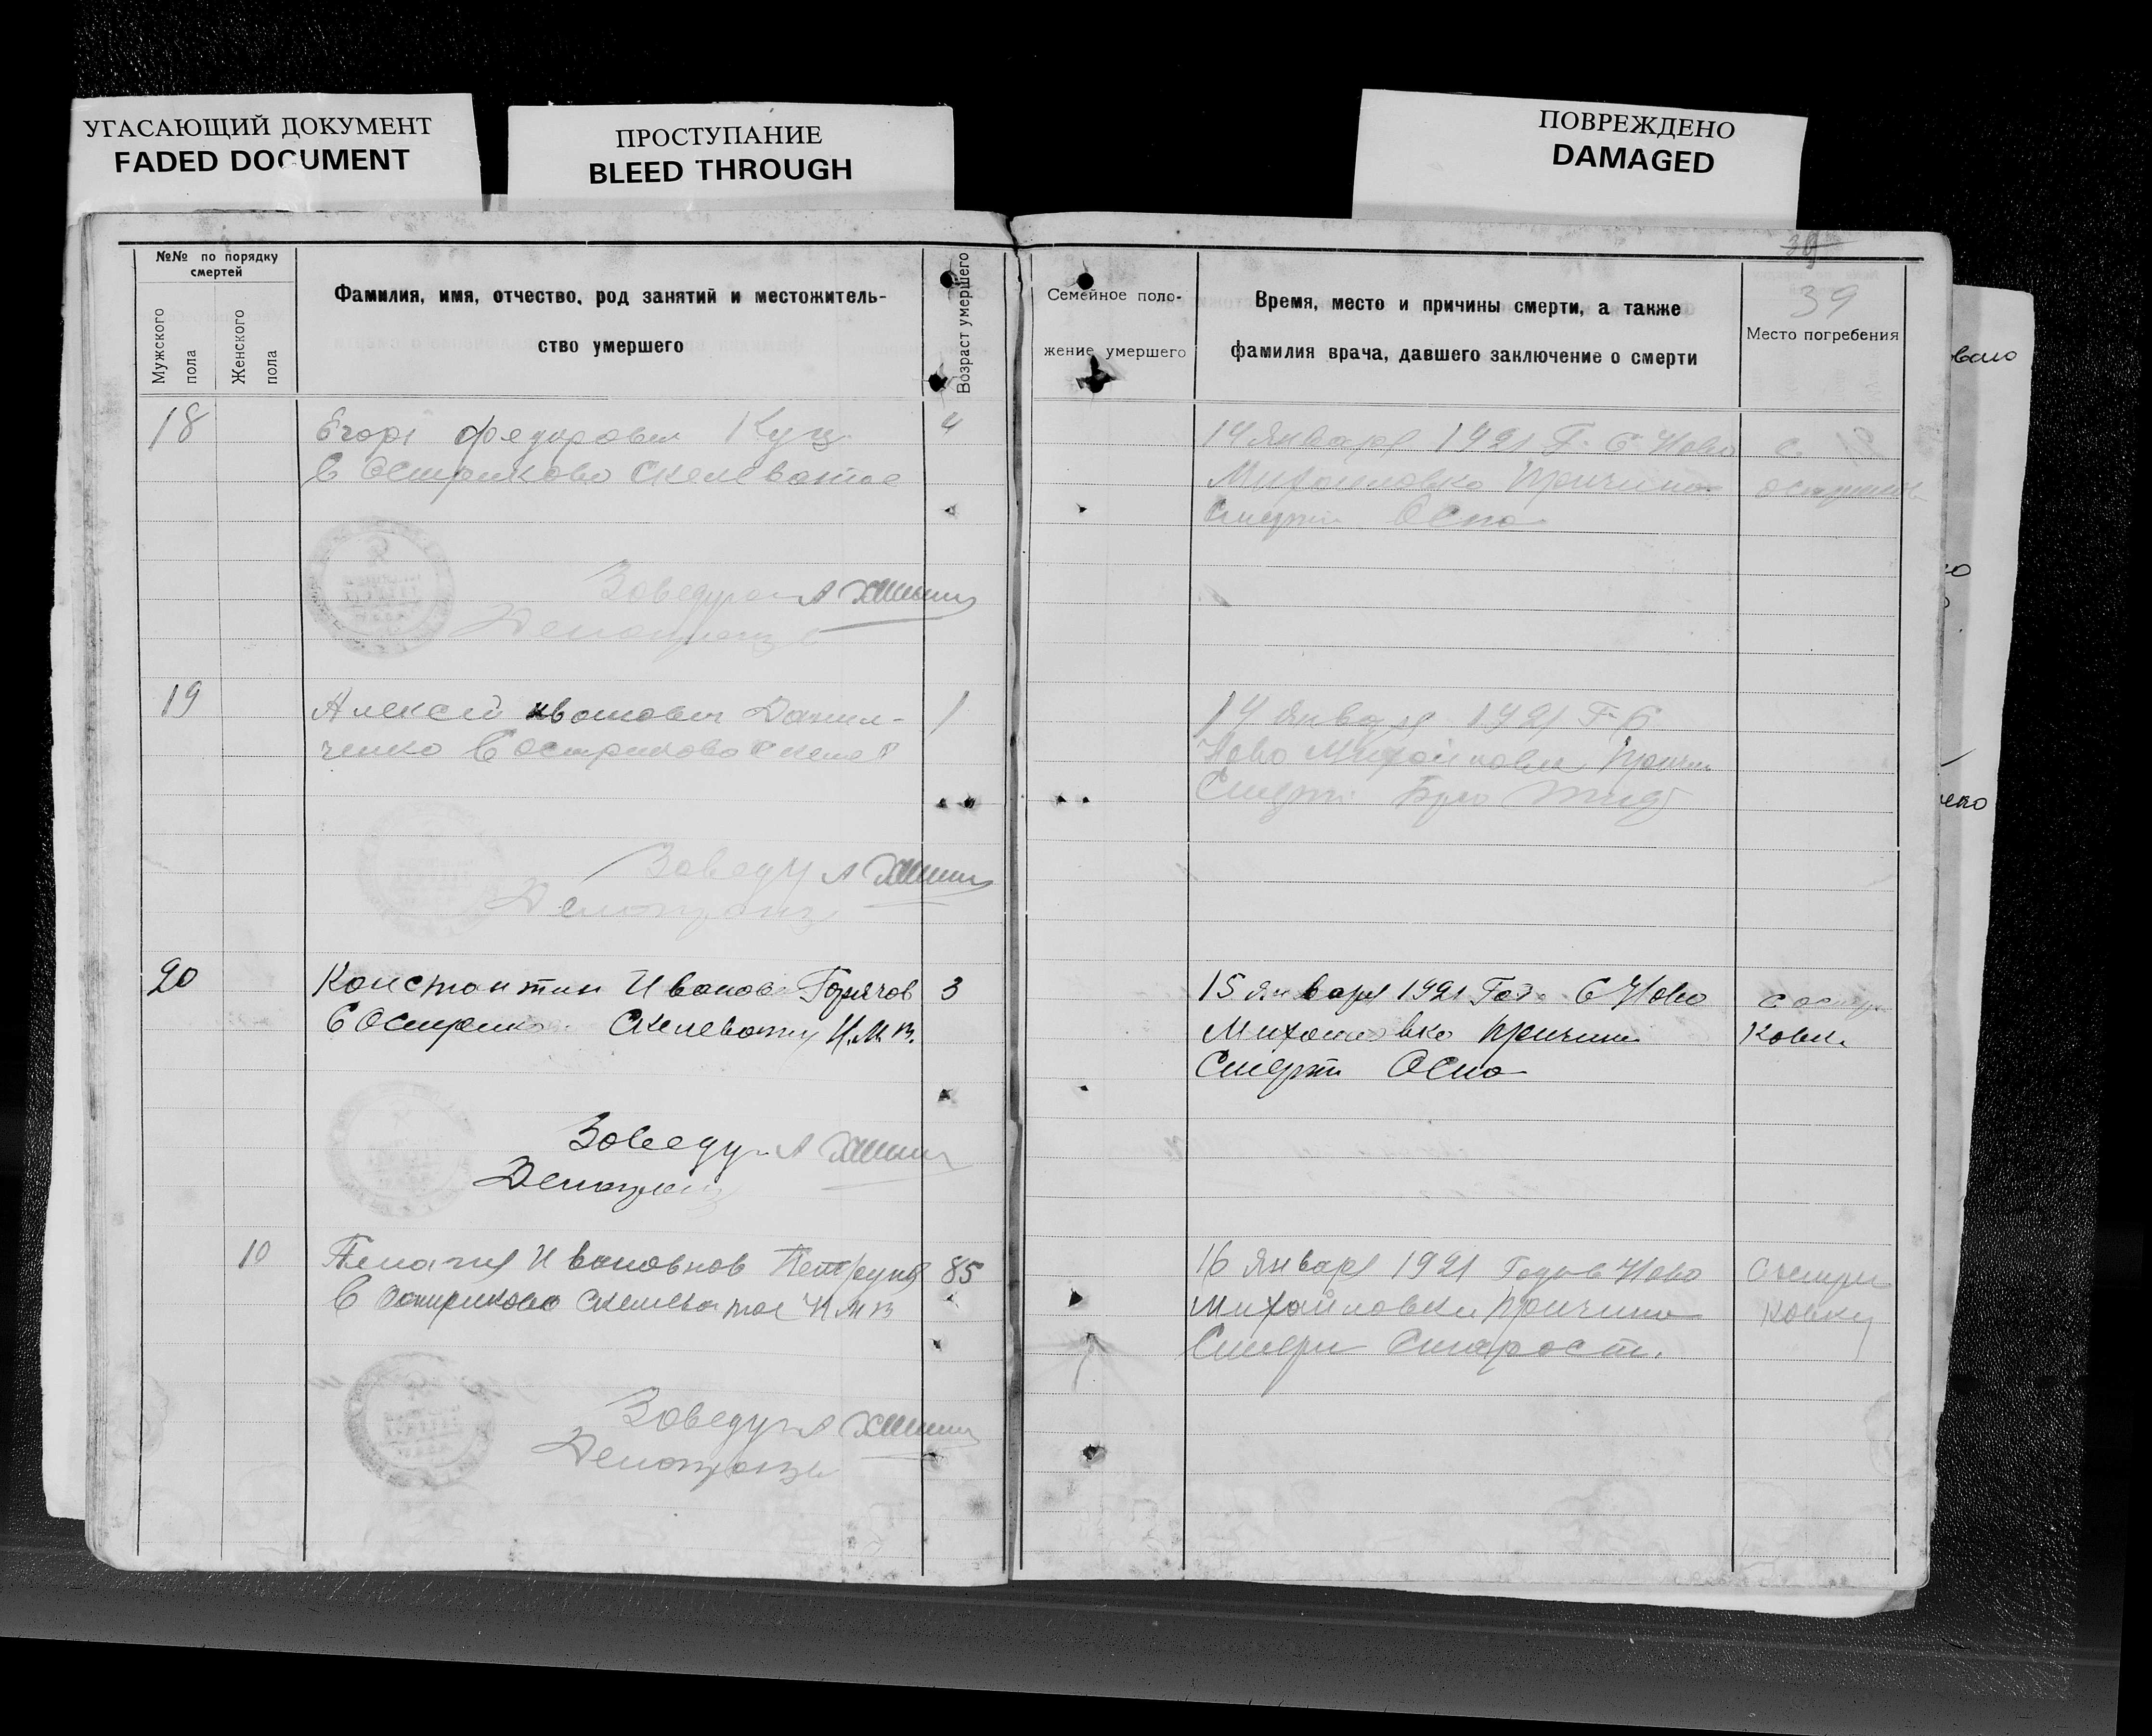 УГАСАЮЩИЙ ДОКУМЕНТ
FADED DOCUMENT
ПРОСТУПАНИЕ
BLEED THROUGH
ПОВРЕЖДЕНО
DAMAGED
39
39
№№ по порядку
смертей
Мужского
пола
Женского
пола
Фамилия, имя, отчество, род занятий и местожитель-
ство умершего
Возраст умершего
Семейное поло-
жение умершего
Время, место и причины смерти, а также
фамилия врача, давшего заключение о смерти
Место погребения
18
Егорь Федорович Куц
С Остриково Скелеватое
4
14 Января 1921 Г. С Ново
Михайловка Причина
Смерти Оспа
с.
Заведующ
19
Алексей Иванович Данил-
ченко С Остриково
1
14 Января 1921 Г. С
Ново Михайловка Причин
Смерти Брю Тиф
Заведу
20
Константин Иванов Горячов
С Острико Скелеватку Н.М.в.
3
15 Января 1921 Года С Ново
Михайловка причина
Смерти Оспа
с остри
ковка
Заведу
10
Пелагия Ивановнов
С Остриково Скелеватое Н М в
85
16 Января 1921 Года Ново
Михайловки причина
Смери Старост.
Остри
ковку
Заведу